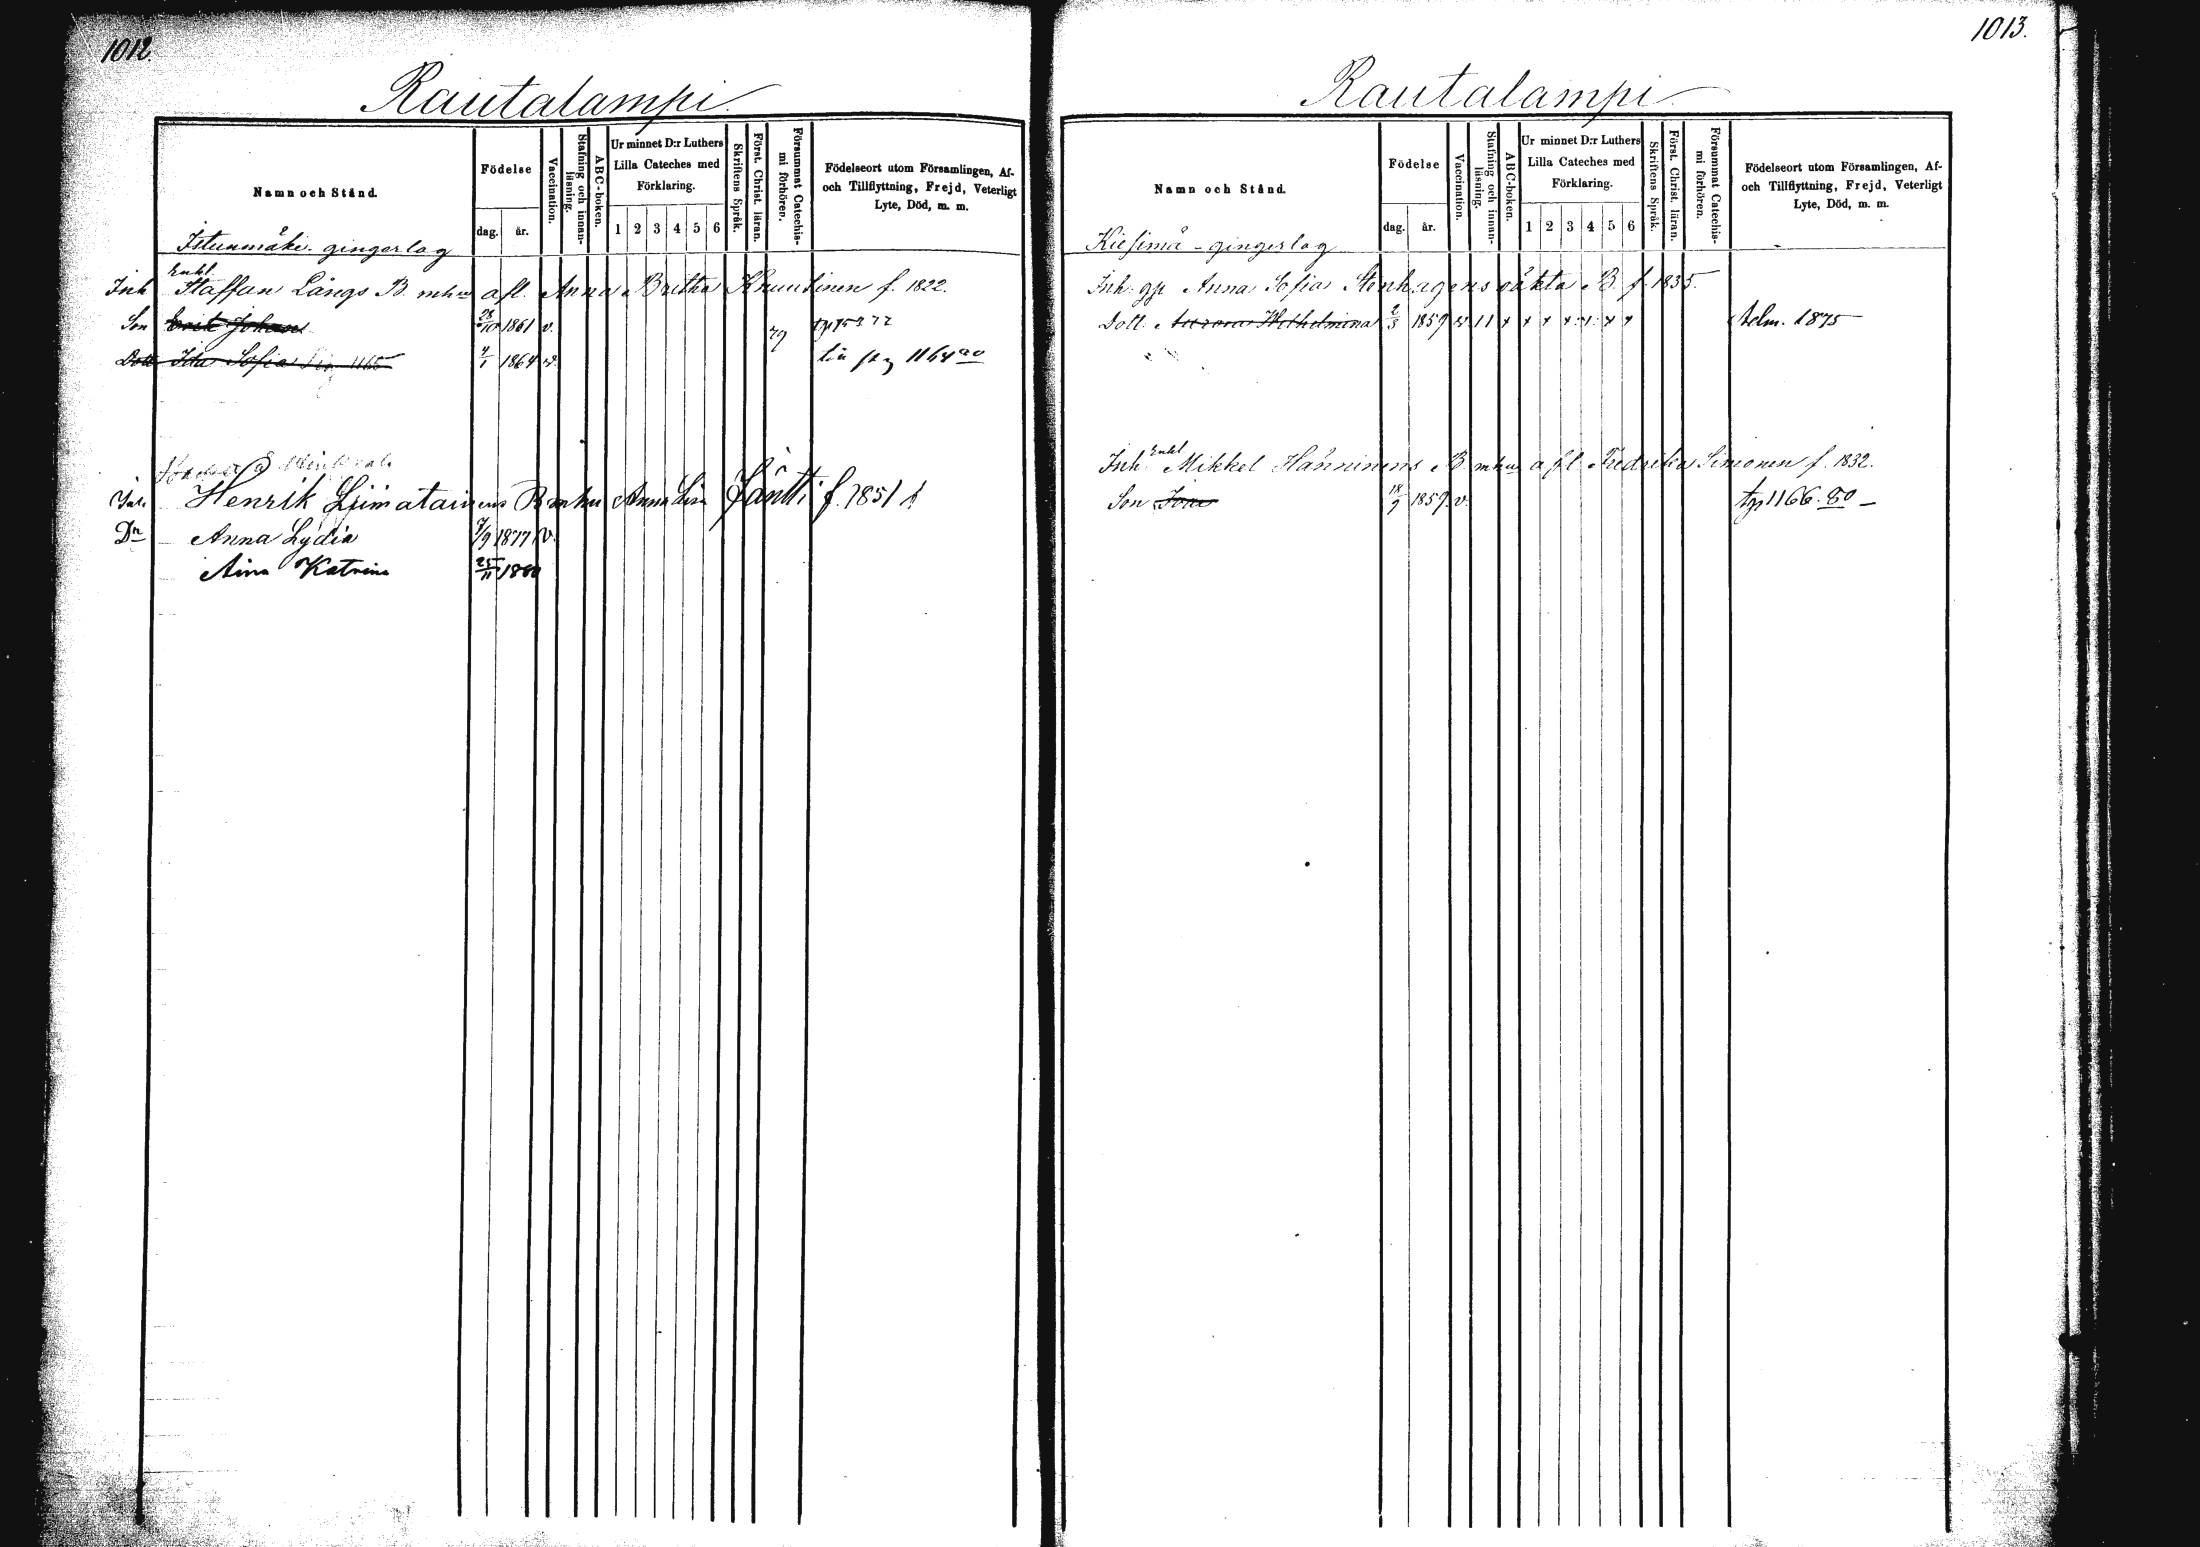 1012.
Rautalampi.
Namn och Stånd.
Födelse
dag. år.
Vaccination.
Stafning och innanläsning.
ABC-boken.
Ur minnet D:r Luthers Lilla Cateches med Förklaring.
1 2 3 4 5 6
Skriftens Språk.
Först. Christ. läran.
Försummat Catechismi förhören.
Födelseort utom Församlingen, Af- och Tillflyttning, Frejd, Veterligt Lyte, Död, m. m.
Istunmäki gingerlag
Enkl.
Inh Staffan Långs B. mhu afl. Anna Britha Knuutinen f. 1822.
Son Erik Johan 28/10 1861 v.
Dott Ida Sofia 1165 4/1 1864 v. 79 1164 80
Inh. Henrik Liimatainens B mhu Anna Lisa Jäntti f. 1851
Dr Anna Lydia 7/9 1877 v.
Aina Katrina 25/11 1880
1013.
Rautalampi
Namn och Stånd.
Födelse
dag. år.
Vaccination.
Stafning och innanläsning.
ABC-boken.
Ur minnet D:r Luthers Lilla Cateches med Förklaring.
1 2 3 4 5 6
Skriftens Språk.
Först. Christ. läran.
Försummat Catechismi förhören.
Födelseort utom Församlingen, Af- och Tillflyttning, Frejd, Veterligt Lyte, Död, m. m.
Kiesimä - gingerlag
Inh. gp Anna Sofia Stenhagens oäkta B. f. 1835.
Dott. Aurora Wilhelmina 2/3 1859 v. 11 x x x x x x Adm. 1875
Enkl
Inh Mikkel Hänninens B mhu afl Fredrika Simonen f. 1832.
Son 18/9 1859. v. tgp 1166. 80 –